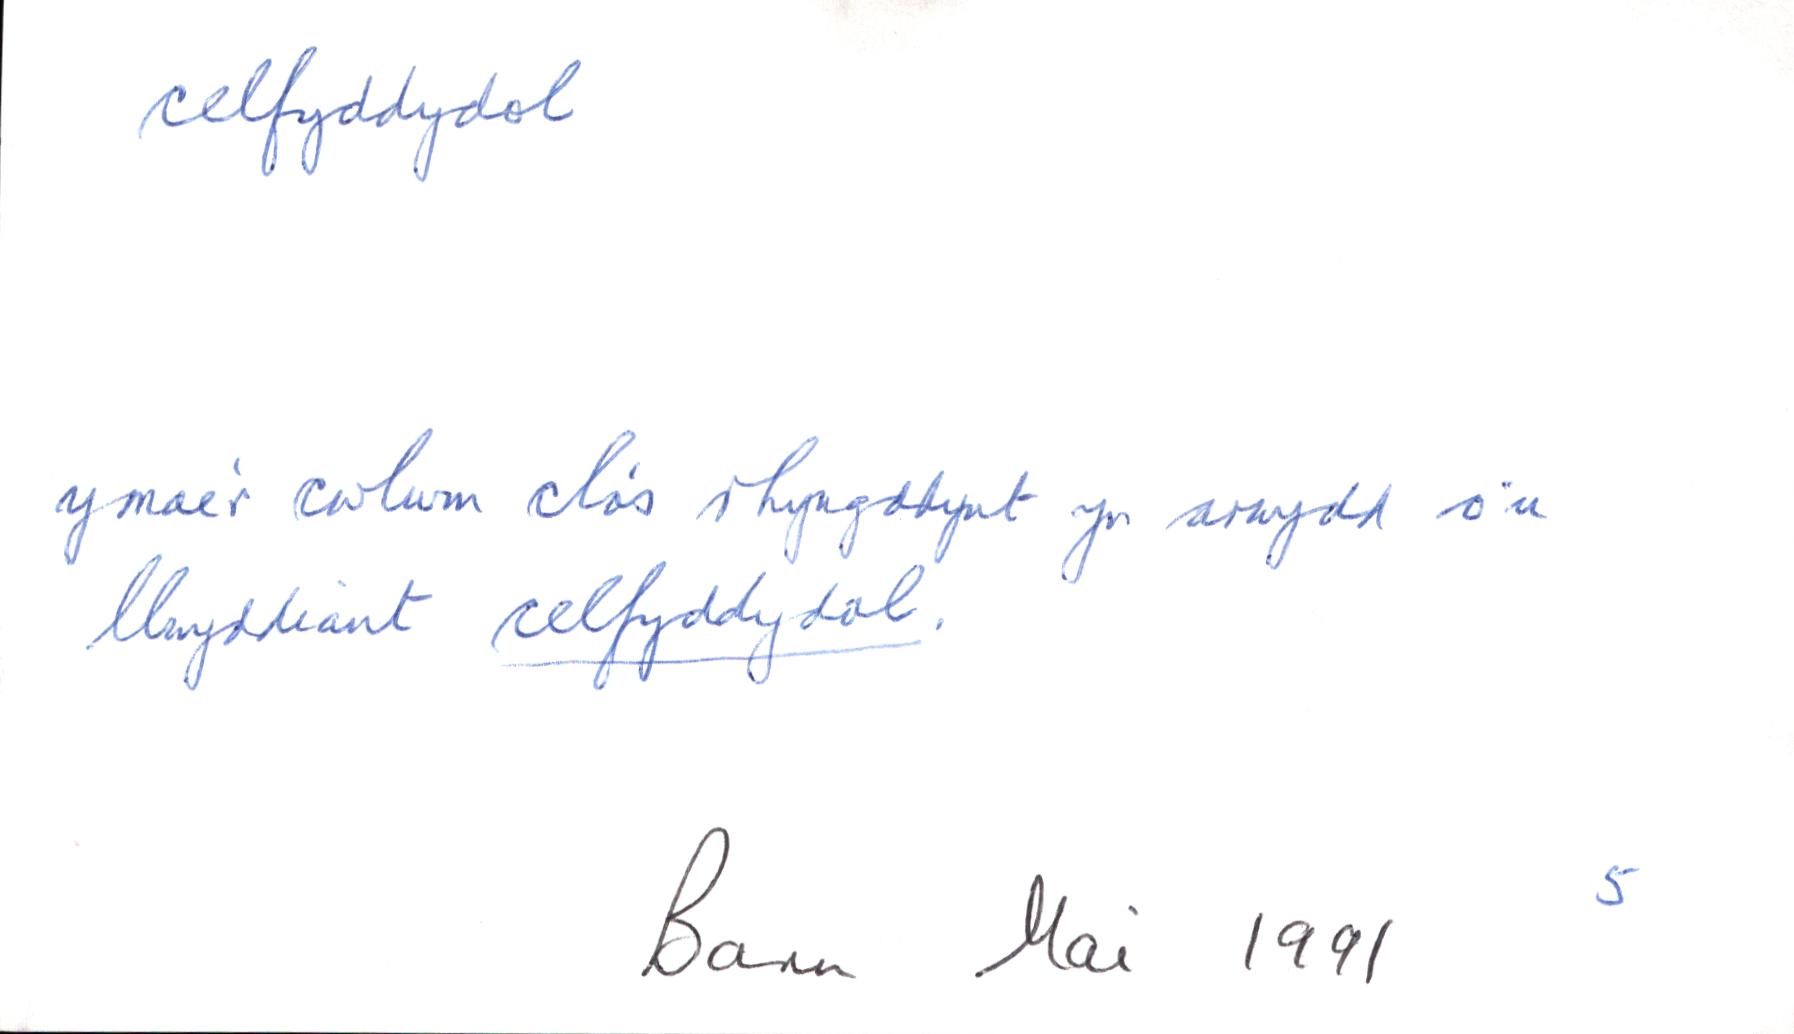 celfyddydol
y mae'r cwlwm clòs rhyngddynt yn arwydd o'u
llwyddiant celfyddydol.
Barn Mai 1991 5